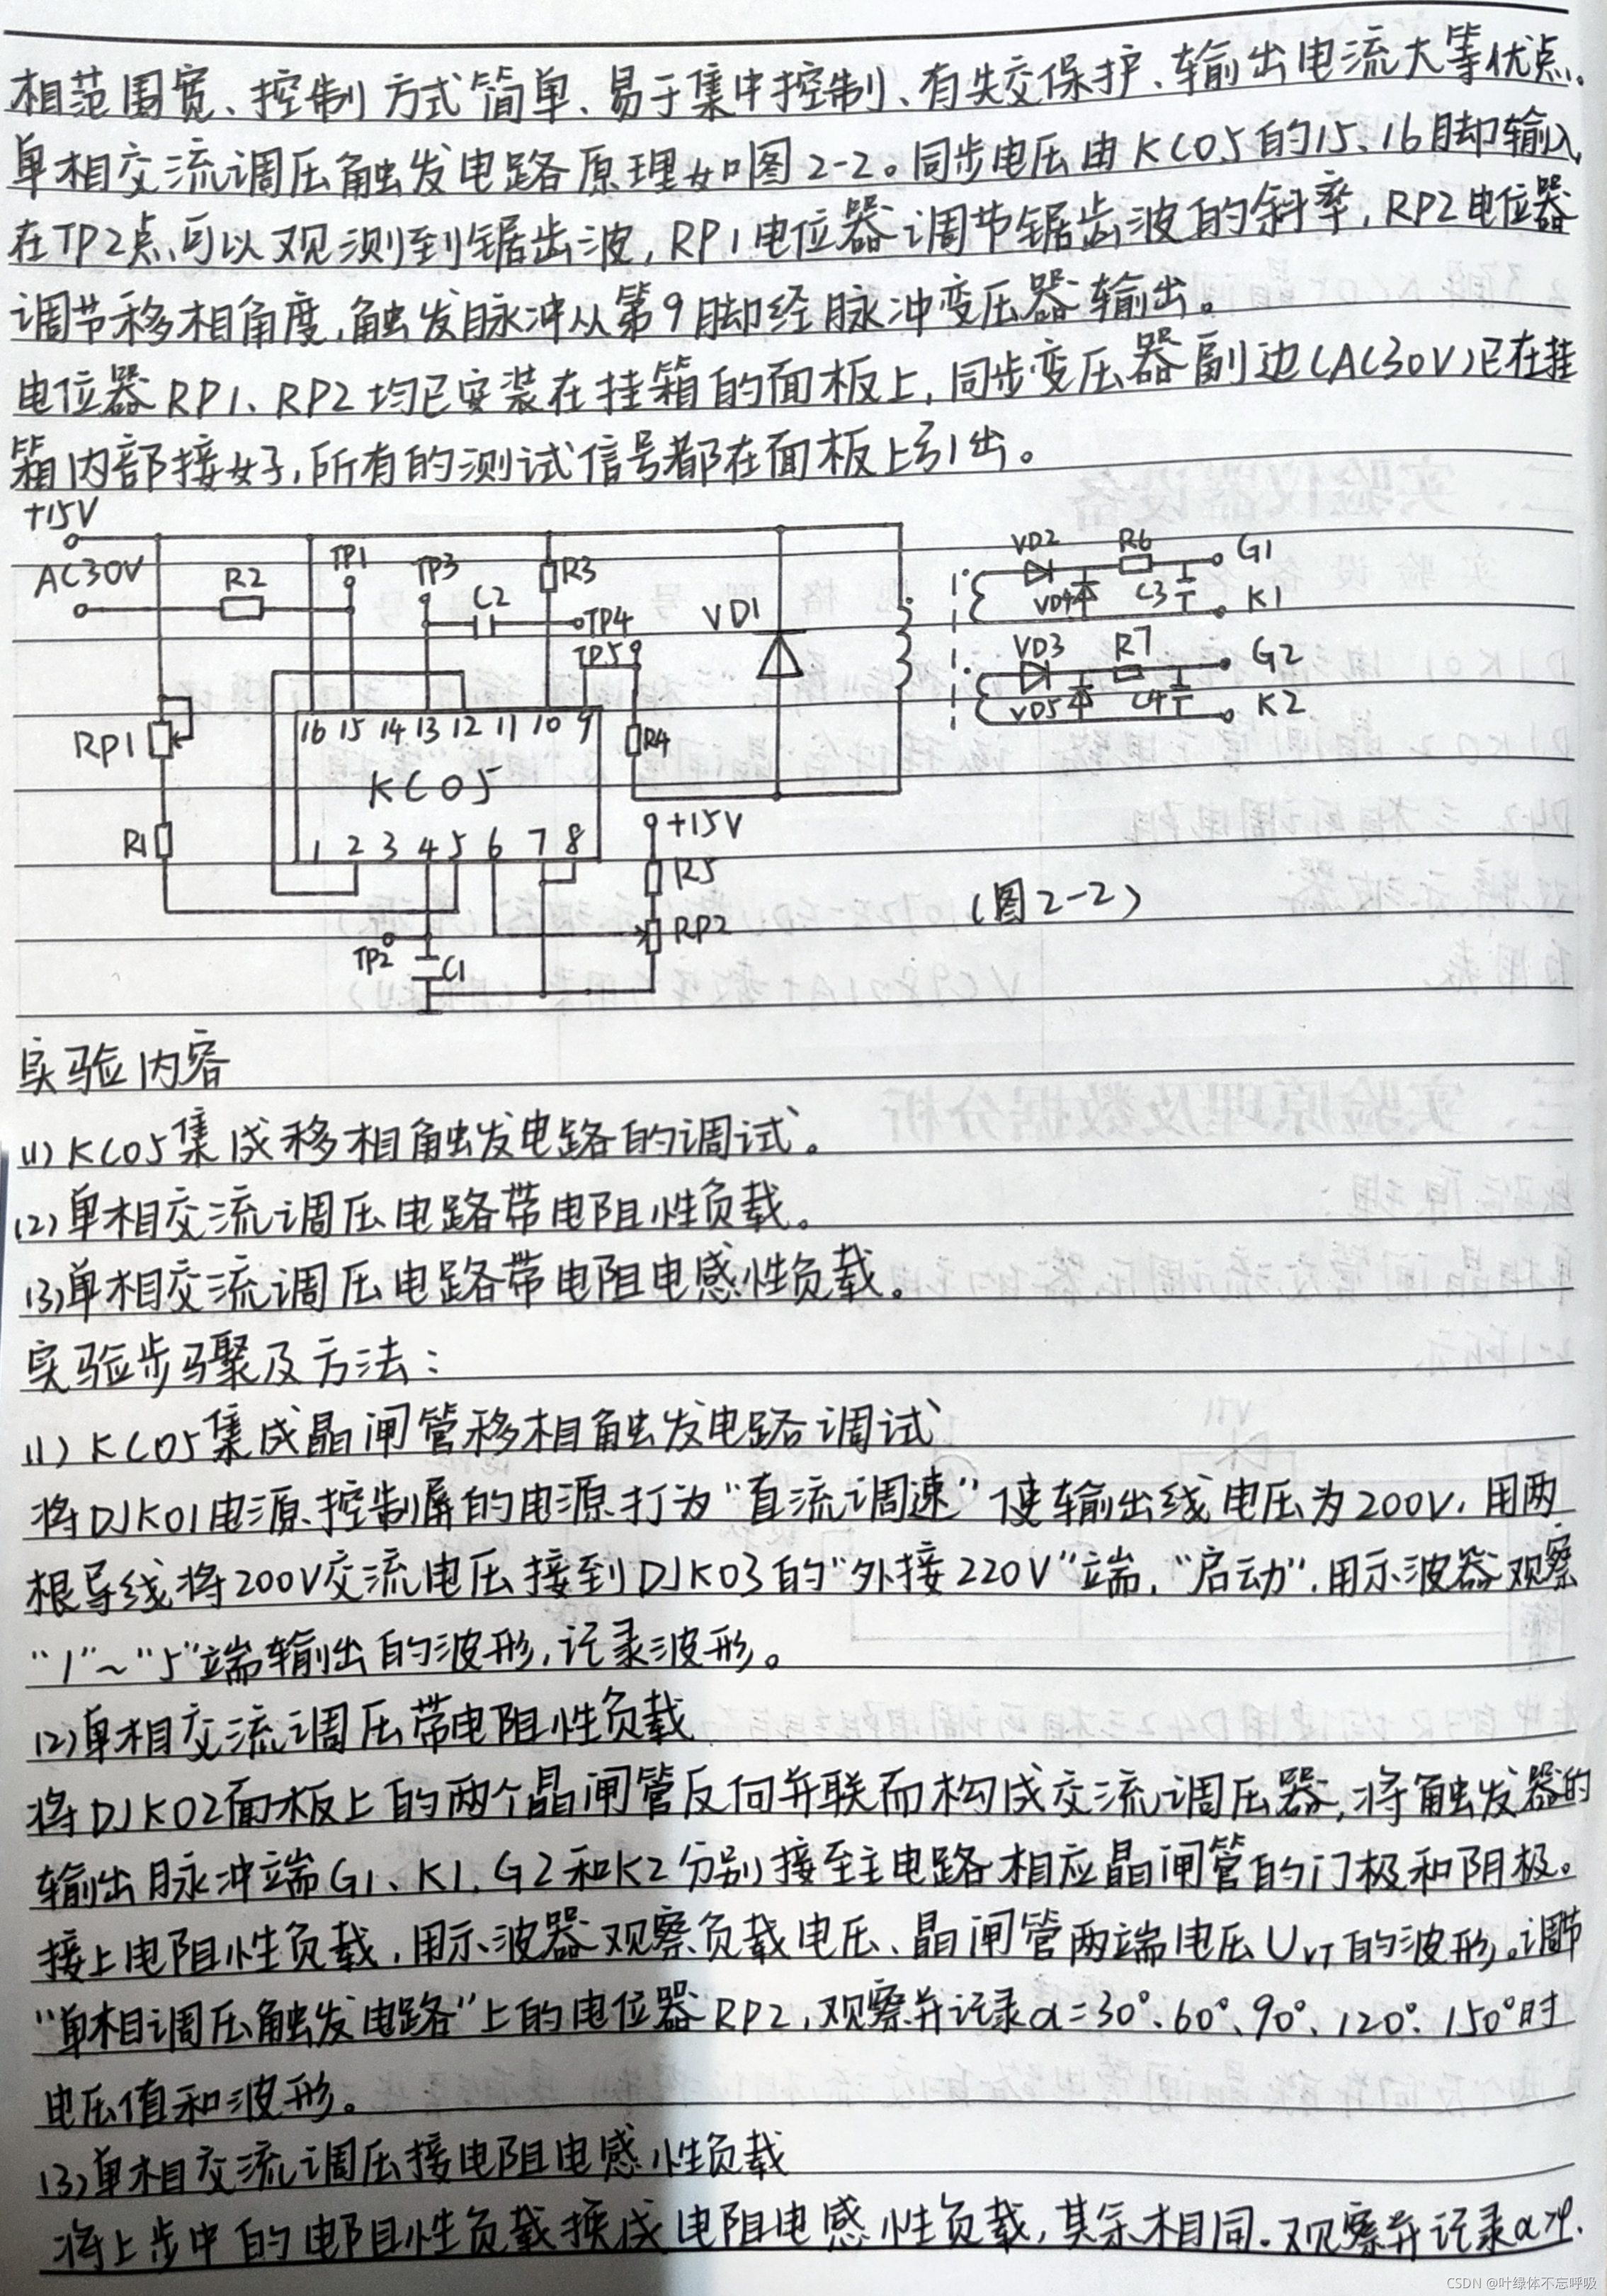 相范围宽、控制方式简单、易于集中控制、有失交保护、输出电流大等优点。
单相交流调压触发电路原理如图2-2。同步电压由KC05的15、16脚输入,
在TP2点可以观测到锯齿波,RP1电位器调节锯齿波的斜率,RP2电位器
调节移相角度,触发脉冲从第9脚经脉冲变压器输出。
电位器RP1、RP2均已安装在挂箱的面板上,同步变压器副边(AC30V)已在挂
箱内部接好,所有的测试信号都在面板上引出。
+15V
AC30V R2 TP1 TP3 C2 R3 TP4 TP5 VD1
VD2 R6 G1
VD4 C3 K1
VD3 R7 G2
VD5 C4 K2
RP1 16 15 14 13 12 11 10 9 R4
KC05
R1 1 2 3 4 5 6 7 8
+15V
R5
RP2
TP2 C1
(图2-2)
实验内容
(1)KC05集成移相触发电路的调试。
(2)单相交流调压电路带电阻性负载。
(3)单相交流调压电路带电阻电感性负载。
实验步骤及方法:
(1)KC05集成晶闸管移相触发电路调试
将DJK01电源控制屏的电源打为“直流调速”使输出线电压为200V,用两
根导线将200V交流电压接到DJK03的“外接220V”端,“启动”,用示波器观察
“1”~“5”端输出的波形,记录波形。
(2)单相交流调压带电阻性负载
将DJK02面板上的两个晶闸管反向并联而构成交流调压器,将触发器的
输出脉冲端G1、K1,G2和K2分别接至主电路相应晶闸管的门极和阴极。
接上电阻性负载,用示波器观察负载电压、晶闸管两端电压UVT的波形。调节
“单相调压触发电路”上的电位器RP2,观察并记录α=30°、60°、90°、120°、150°时
电压值和波形。
(3)单相交流调压接电阻电感性负载
将上步中的电阻性负载换成电阻电感性负载,其余相同。观察并记录α
CSDN @叶绿体不忘呼吸